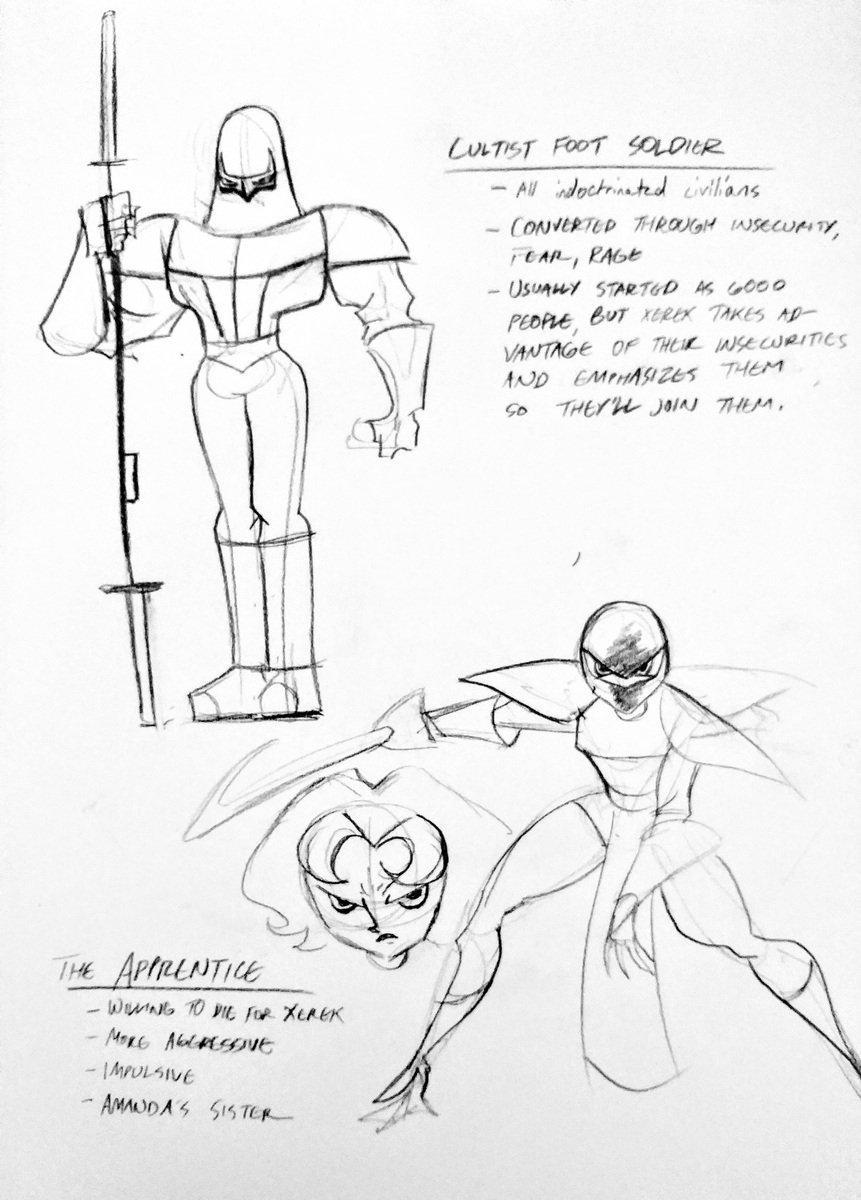 CULTIST FOOT SOLDIER
- All indoctrinated civilians
- CONVERTED THROUGH INSECURITY,
FEAR, RAGE
- USUALLY STARTED AS GOOD
PEOPLE, BUT XEREK TAKES AD-
VANTAGE OF THEIR INSECURITIES
AND EMPHASIZES THEM
SO THEY'LL JOIN THEM.
THE APPRENTICE
- WILLING TO DIE FOR XEREK
- MORE AGGRESSIVE
- IMPULSIVE
- AMANDA'S SISTER